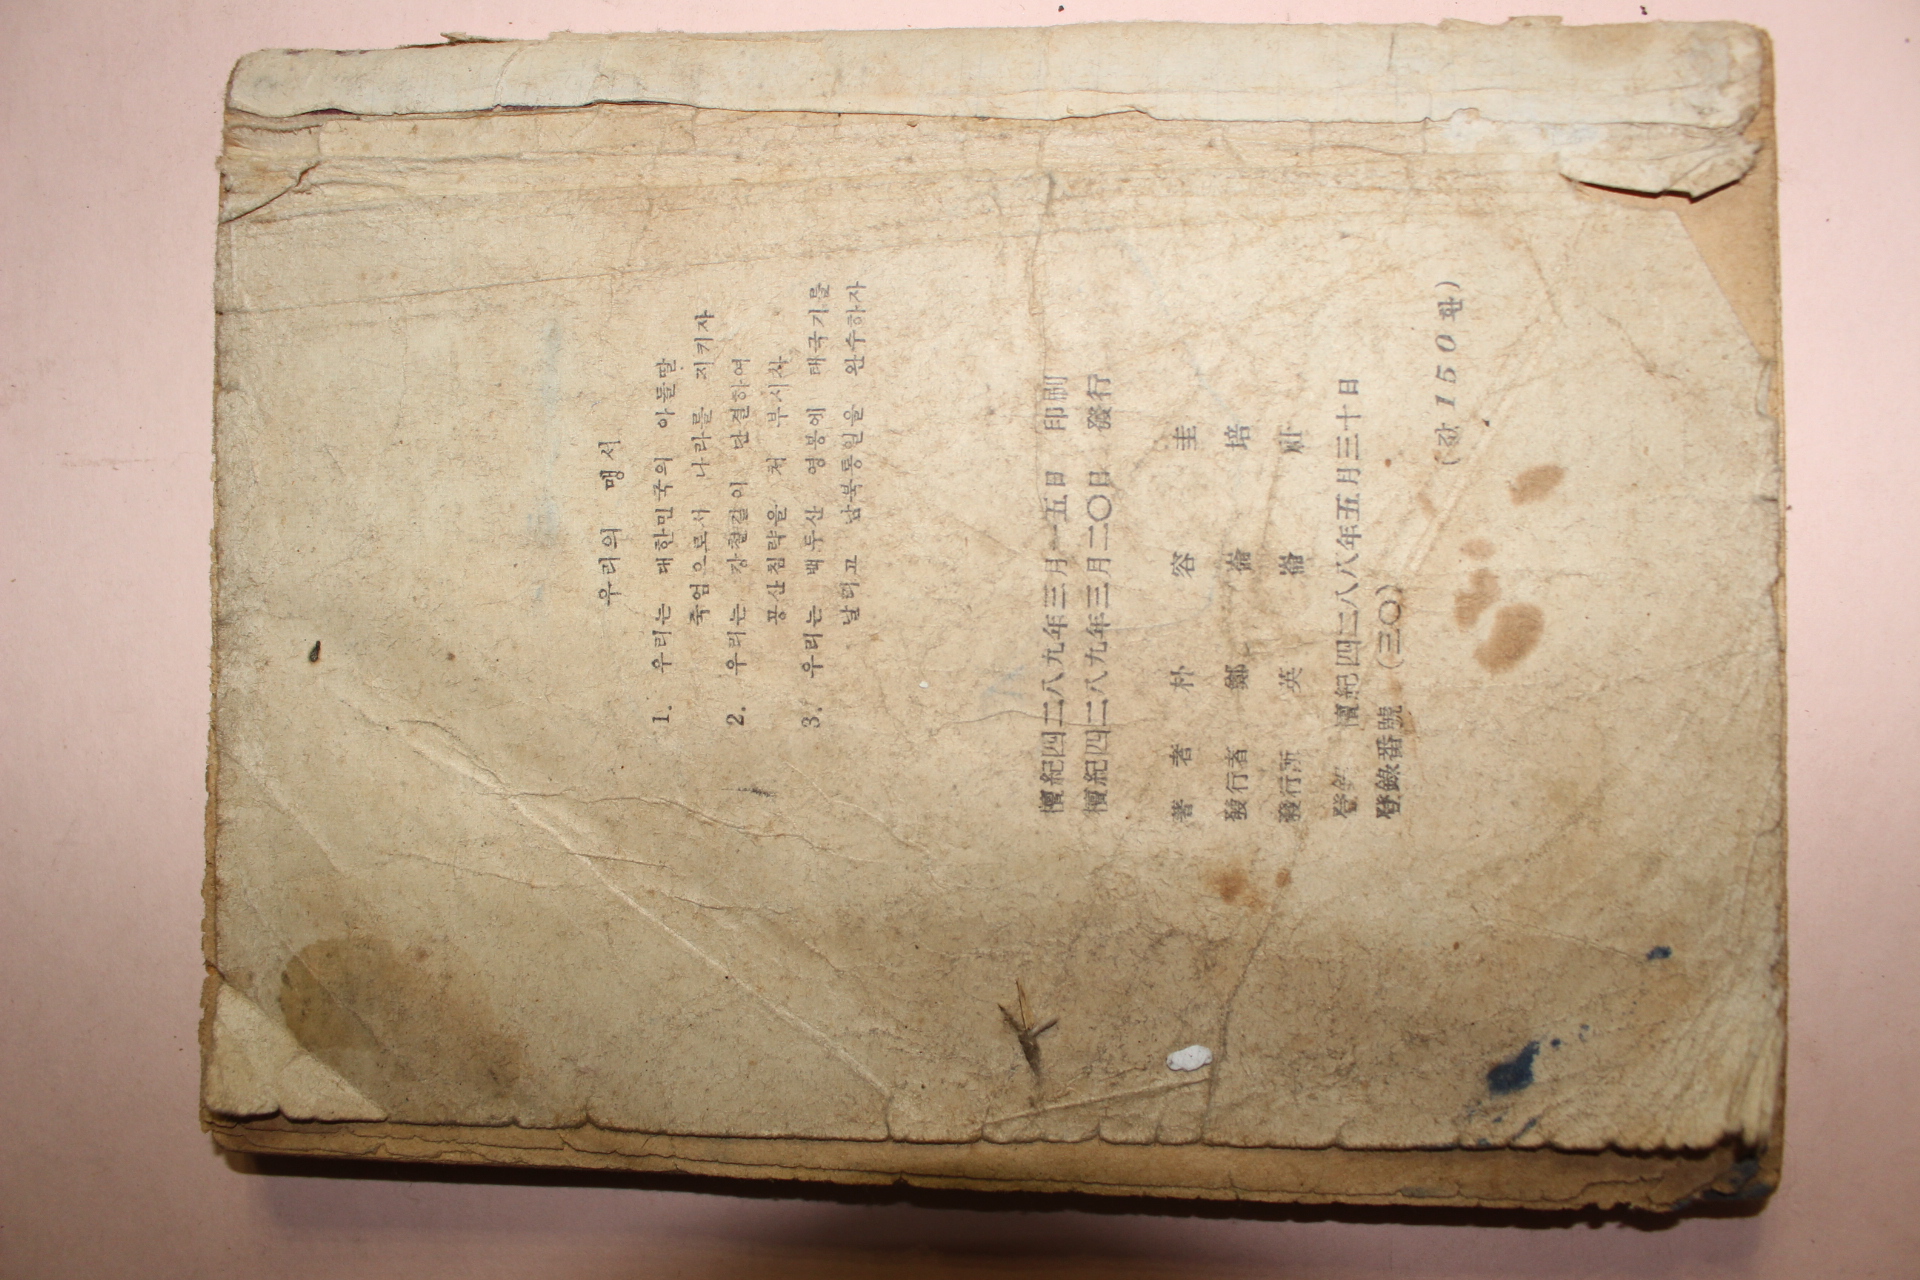 우리의 맹서
1. 우리는 대한민국의 아들딸
죽엄으로서 나라를 지키자
2. 우리는 강철같이 단결하여
공산침략을 처 부시자
3. 우리는 백두산 영봉에 태극기를
날리고 남북통일을 완수하자
檀紀四二八九年三月一五日 印刷
檀紀四二八九年三月二〇日 發行
著者 朴容圭
發行者 鄭崙培
發行所 英崙社
登 檀紀四二八八年五月三十日
登錄番號 (三〇)
(값 150환)